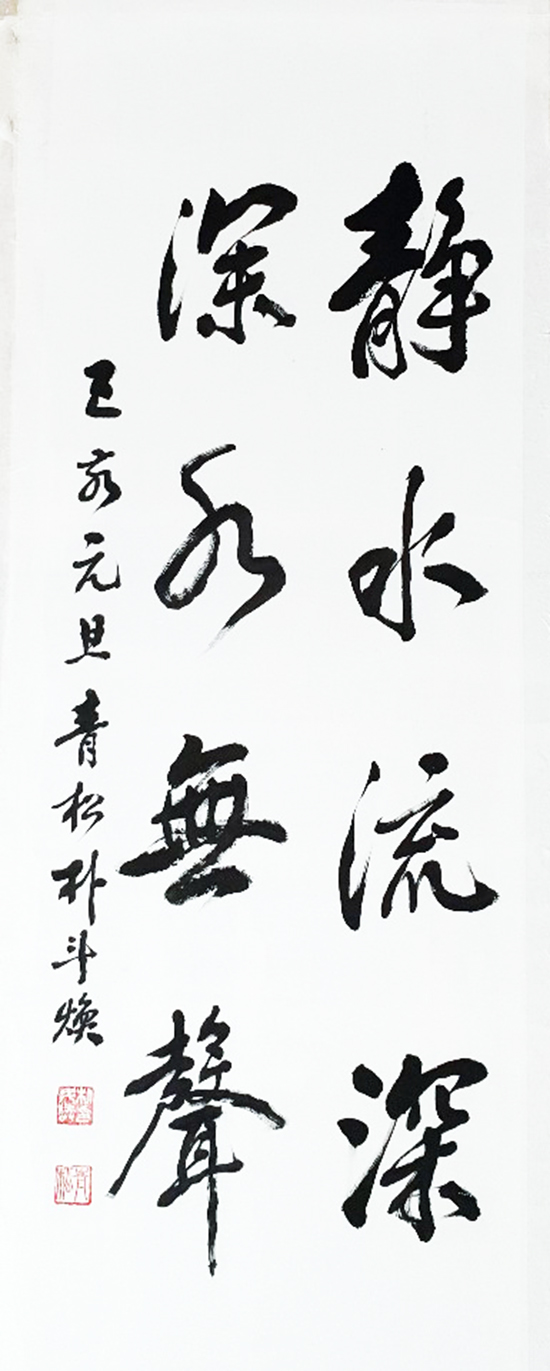 靜水流深
深水無聲
己亥元旦青松朴斗煥